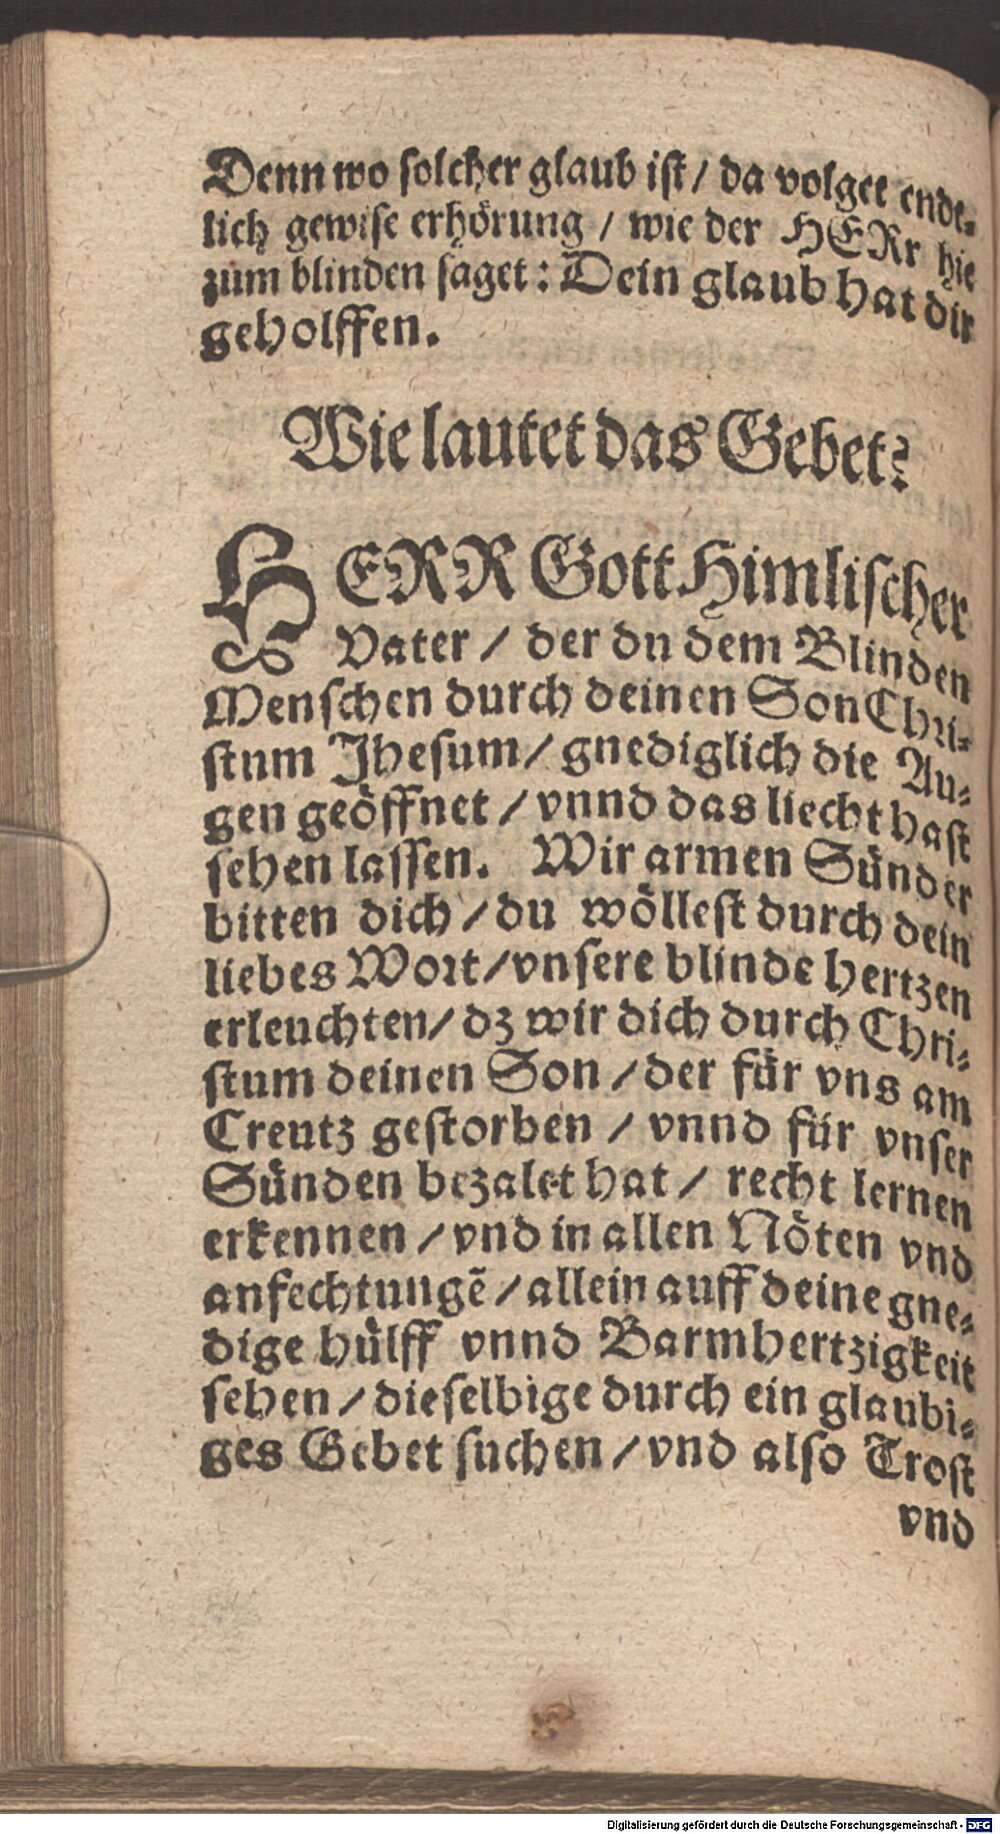 Denn wo solcher glaub ist / da volget ende-
lich gewise erhörung / wie der HERr hie
zum blinden saget : Dein glaub hat dir
geholffen.
Wie lautet das Gebet?
HERR Gott Himlischer
Vater / der du dem Blinden
Menschen durch deinen Son Chri-
stum Jhesum / gnediglich die Au-
gen geöffnet / vnnd das liecht hast
sehen lassen. Wir armen Sünder
bitten dich / du wöllest durch dein
liebes Wort / vnsere blinde hertzen
erleuchten / dz wir dich durch Chri-
stum deinen Son / der für vns am
Creutz gestorben / vnnd für vnser
Sünden bezalet hat / recht lernen
erkennen / vnd in allen Nöten vnd
anfechtungẽ / allein auff deine gne-
dige hülff vnnd Barmhertzigkeit
sehen / dieselbige durch ein glaubi-
ges Gebet suchen / vnd also Trost
vnd
Digitalisierung gefördert durch die Deutsche Forschungsgemeinschaft - DFG